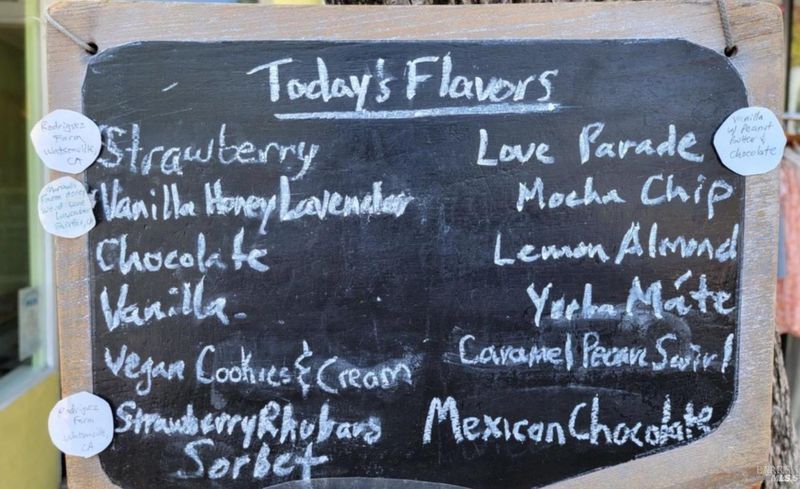 Today's Flavors
Rodriguez
Farm
Watsonville
CA
Strawberry
Vanilla Honey Lavender
Chocolate
Vanilla
Vegan Cookies & Cream
Rodriguez
Farm
Watsonville
CA
Strawberry Rhubarb
Sorbet
Love Parade
Vanilla
w/ Peanut
Butter &
Chocolate
Mocha Chip
Lemon Almond
Yerba Máte
Caramel Pecan Swirl
Mexican Chocolate
BAREIS
MLS